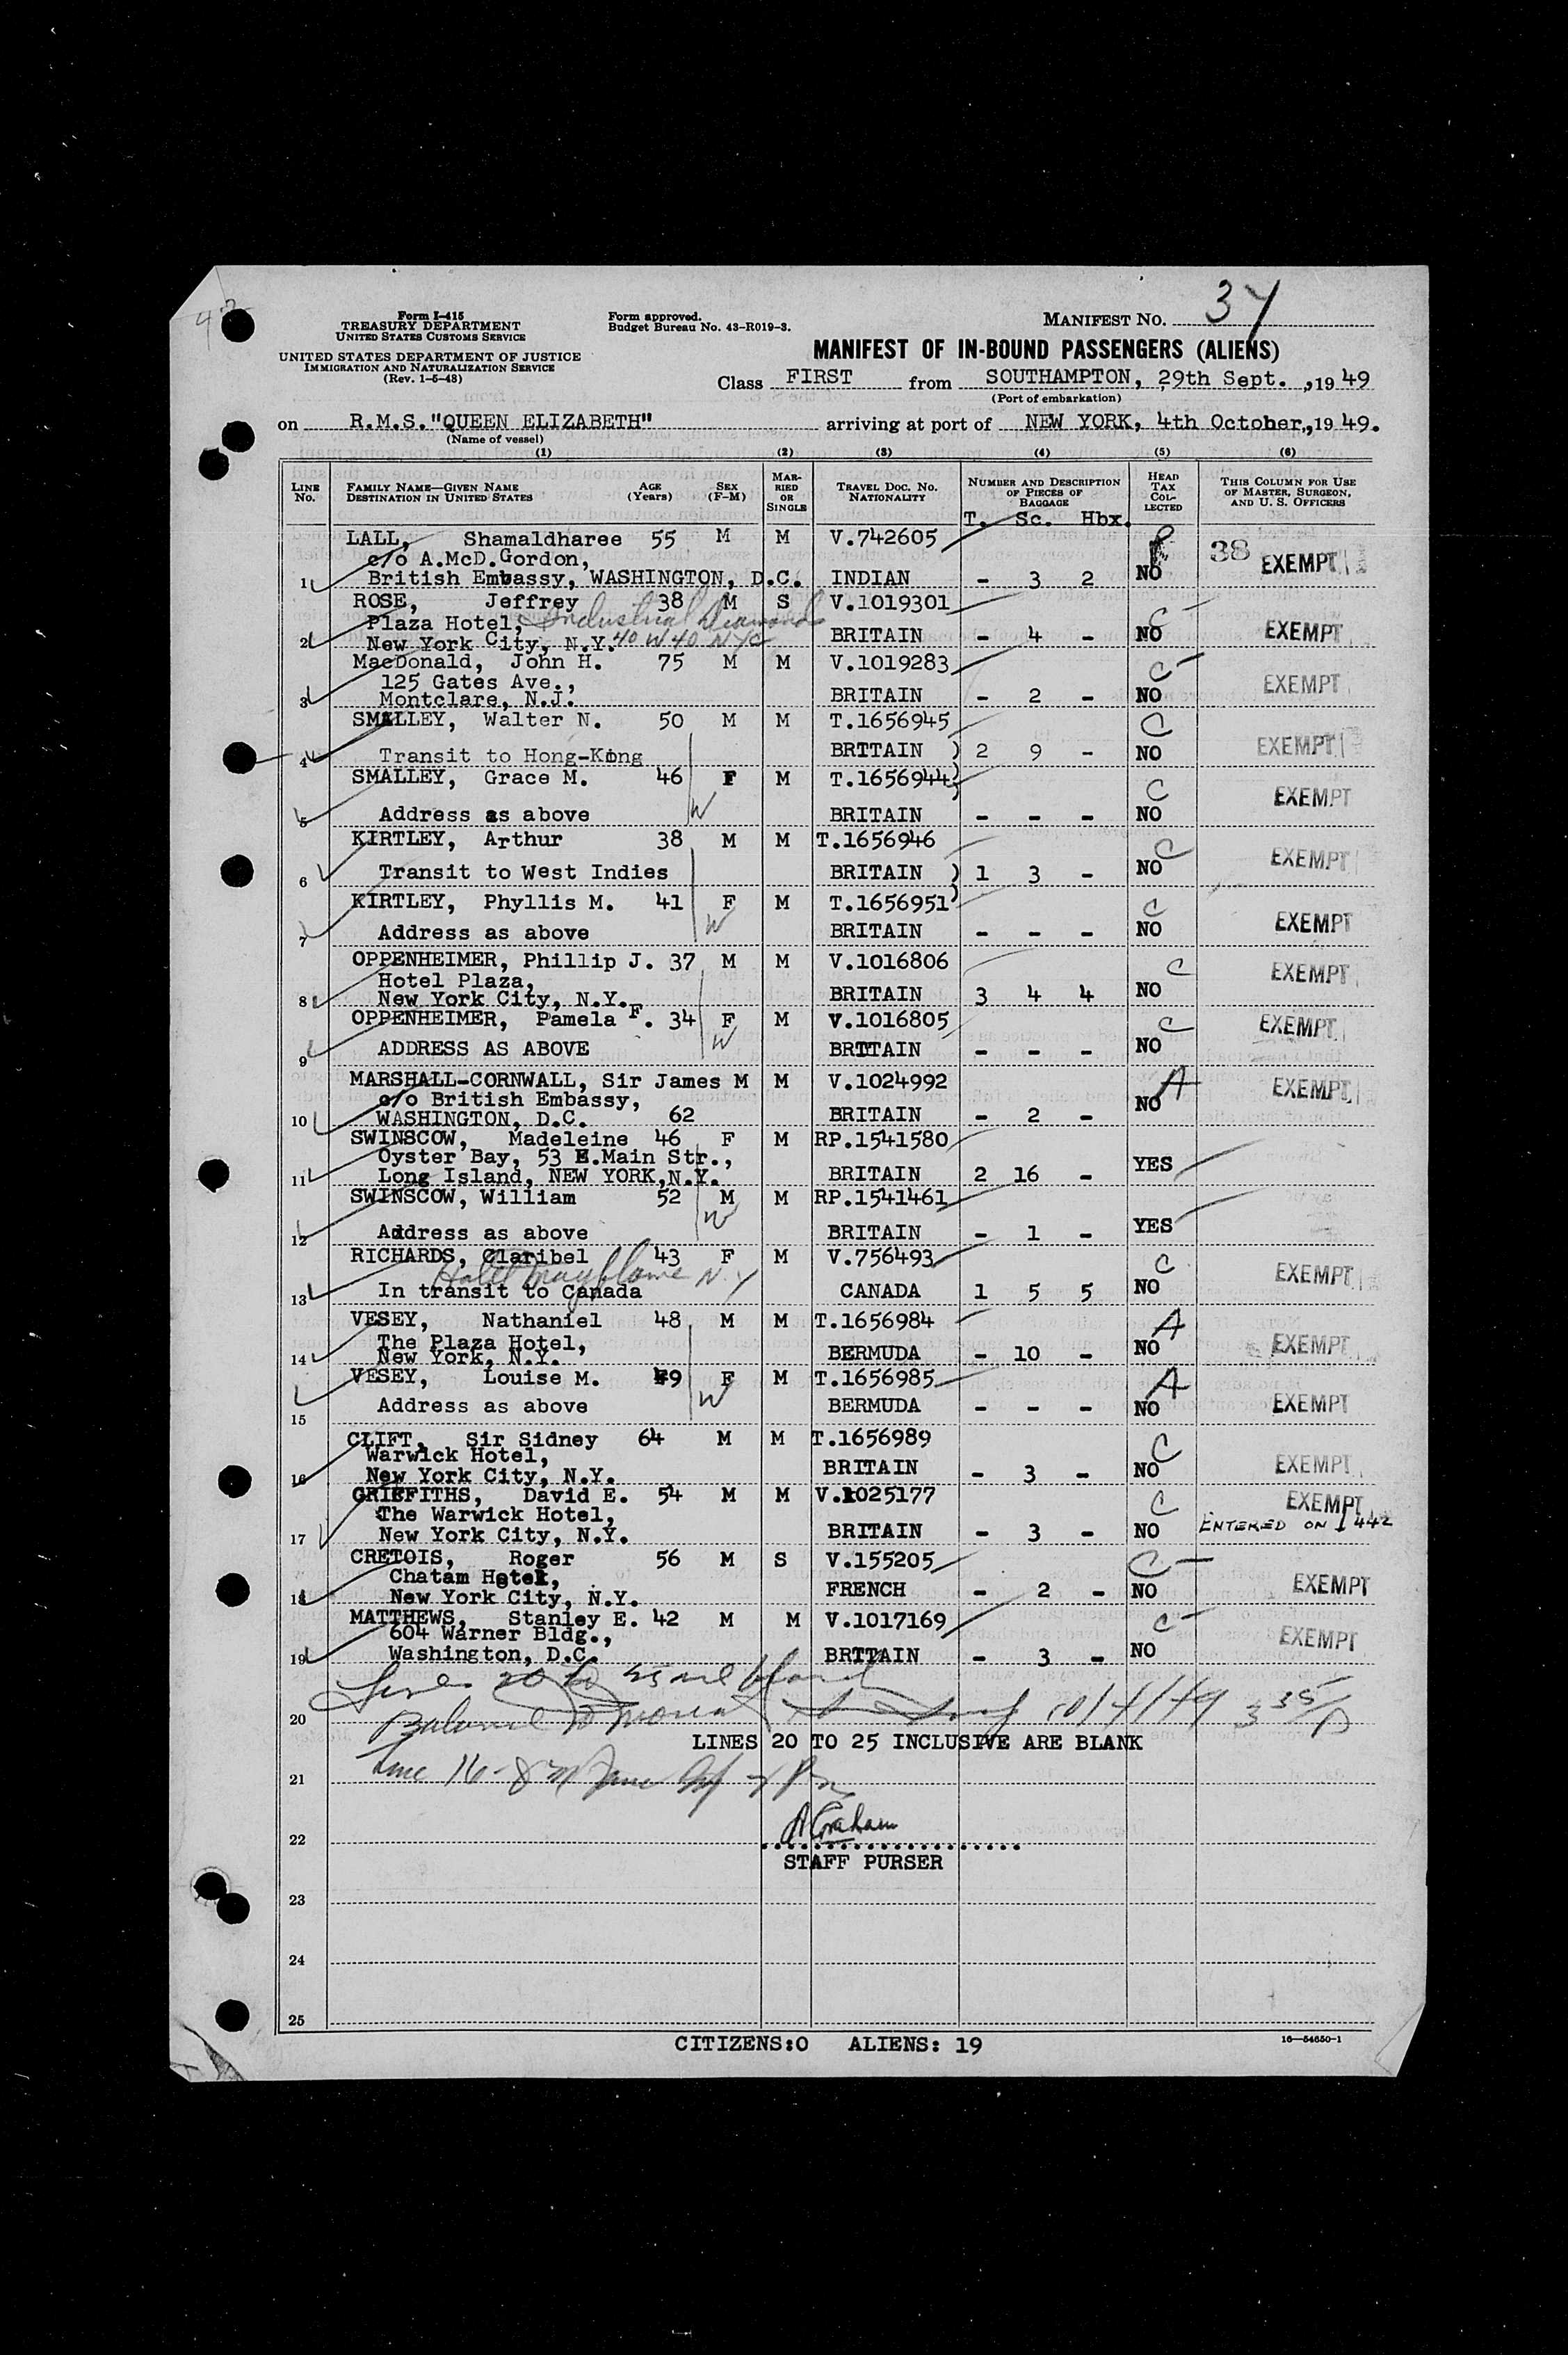 Form I-415
TREASURY DEPARTMENT
UNITED STATES CUSTOMS SERVICE
UNITED STATES DEPARTMENT OF JUSTICE
IMMIGRATION AND NATURALIZATION SERVICE
(Rev. 1-5-48)
Form approved.
Budget Bureau No. 43-R019-3.
MANIFEST NO. 34
MANIFEST OF IN-BOUND PASSENGERS (ALIENS)
Class FIRST from SOUTHAMPTON, 29th Sept., 1949
(Port of embarkation)
on R.M.S."QUEEN ELIZABETH" arriving at port of NEW YORK, 4th October, 1949.
(Name of vessel)
(1) (2) (3) (4) (5) (6)
LINE No. FAMILY NAME—GIVEN NAME DESTINATION IN UNITED STATES AGE (Years) SEX (F-M) MARRIED OR SINGLE TRAVEL DOC. NO. NATIONALITY NUMBER AND DESCRIPTION OF PIECES OF BAGGAGE HEAD TAX COLLECTED THIS COLUMN FOR USE OF MASTER, SURGEON, AND U. S. OFFICERS
T. Sc. Hbx.
LALL, Shamaldharee 55 M M V.742605
c/o A.McD.Gordon, 38 EXEMPT
1 British Embassy, WASHINGTON, D.C. INDIAN - 3 2 NO
ROSE, Jeffrey 38 M S V.1019301 C
Plaza Hotel, Industrial Diamonds
2 New York City, N.Y. 40 W 40 NYC BRITAIN - 4 - NO EXEMPT
MacDonald, John H. 75 M M V.1019283 C
125 Gates Ave.,
3 Montclare, N.J. BRITAIN - 2 - NO EXEMPT
SMALLEY, Walter N. 50 M M T.1656945 C
4 Transit to Hong-Kong BRITAIN ) 2 9 - NO EXEMPT
SMALLEY, Grace M. 46 F M T.1656944) C
5 Address as above W BRITAIN - - - NO EXEMPT
KIRTLEY, Arthur 38 M M T.1656946 C
6 Transit to West Indies BRITAIN ) 1 3 - NO EXEMPT
KIRTLEY, Phyllis M. 41 F M T.1656951) C
7 Address as above W BRITAIN - - - NO EXEMPT
OPPENHEIMER, Phillip J. 37 M M V.1016806 C
Hotel Plaza,
8 New York City, N.Y. BRITAIN 3 4 4 NO EXEMPT
OPPENHEIMER, Pamela F. 34 F M V.1016805 C
9 ADDRESS AS ABOVE W BRITAIN - - - NO EXEMPT
MARSHALL-CORNWALL, Sir James M M V.1024992 A
c/o British Embassy,
10 WASHINGTON, D.C. 62 BRITAIN - 2 - NO EXEMPT
SWINSCOW, Madeleine 46 F M RP.1541580
Oyster Bay, 53 E.Main Str.,
11 Long Island, NEW YORK,N.Y. BRITAIN 2 16 - YES
SWINSCOW, William 52 M M RP.1541461
12 Address as above W BRITAIN - 1 - YES
RICHARDS, Claribel 43 F M V.756493 C
Hotel Mayflower N.Y
13 In transit to Canada CANADA 1 5 5 NO EXEMPT
VESEY, Nathaniel 48 M M T.1656984 A
The Plaza Hotel,
14 New York, N.Y. BERMUDA - 10 - NO EXEMPT
VESEY, Louise M. 49 F M T.1656985 A
15 Address as above W BERMUDA - - - NO EXEMPT
CLIFT, Sir Sidney 64 M M T.1656989 C
Warwick Hotel,
16 New York City, N.Y. BRITAIN - 3 - NO EXEMPT
GRIFFITHS, David E. 54 M M V.1025177 C EXEMPT
The Warwick Hotel,
17 New York City, N.Y. BRITAIN - 3 - NO ENTERED ON I 442
CRETOIS, Roger 56 M S V.155205 C
Chatam Hotel,
18 New York City, N.Y. FRENCH - 2 - NO EXEMPT
MATTHEWS, Stanley E. 42 M M V.1017169 C
604 Warner Bldg.,
19 Washington, D.C. BRITAIN - 3 - NO EXEMPT
10/4/49
20
LINES 20 TO 25 INCLUSIVE ARE BLANK
21
AGraham
22
STAFF PURSER
23
24
25
CITIZENS:0 ALIENS: 19
16—54650-1